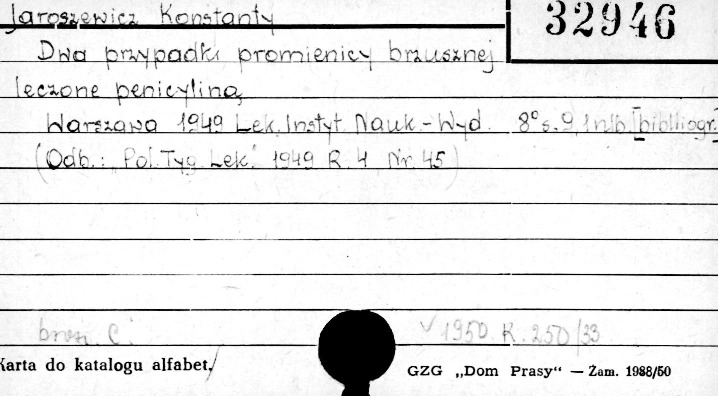 Jaroszewicz Konstanty
32946
Dwa przypadki promienicy brzusznej
leczone penicyliną
Warszawa 1949 Lek. Instyt. Nauk.-Wyd. 8° s. 9, 1 nlb. [bibliogr.]
(Odb.: „Pol. Tyg. Lek." 1949 R. 4 Nr. 45)
brosz. C.
√ 1950. K. 250/33
Karta do katalogu alfabet.
GZG „Dom Prasy" — Zam. 1988/50